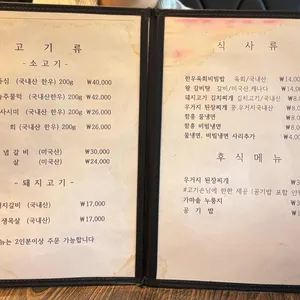 고 기 류
- 소고기 -
등심 (국내산 한우) 200g ₩40,000
주물럭 (국내산한우) 200g ₩42,000
사시미 (국내산 한우) 200g ₩26,000
회 (국내산 한우) 200g ₩26,000
갈비 (미국산) ₩30,000
살 (미국산) ₩24,000
- 돼지고기 -
돼지갈비 (국내산) ₩17,000
생목살 (국내산) ₩17,000
메뉴는 2인분이상 주문 가능합니다
식 사 류
한우육회비빔밥 육회/국내산 ₩14,0
왕 갈비탕 갈비/미국산,캐나다 ₩14,0
돼지고기 김치찌개 김치고기/국내산
우거지 된장찌개 콩.우거지국내산
함흥 물냉면
함흥 비빔냉면
물냉면, 비빔냉면 사리추가
후 식 메 뉴
우거지 된장찌개
#고기손님에 한한 제공 (공기밥 포함
가마솥 누룽지
공 기 밥